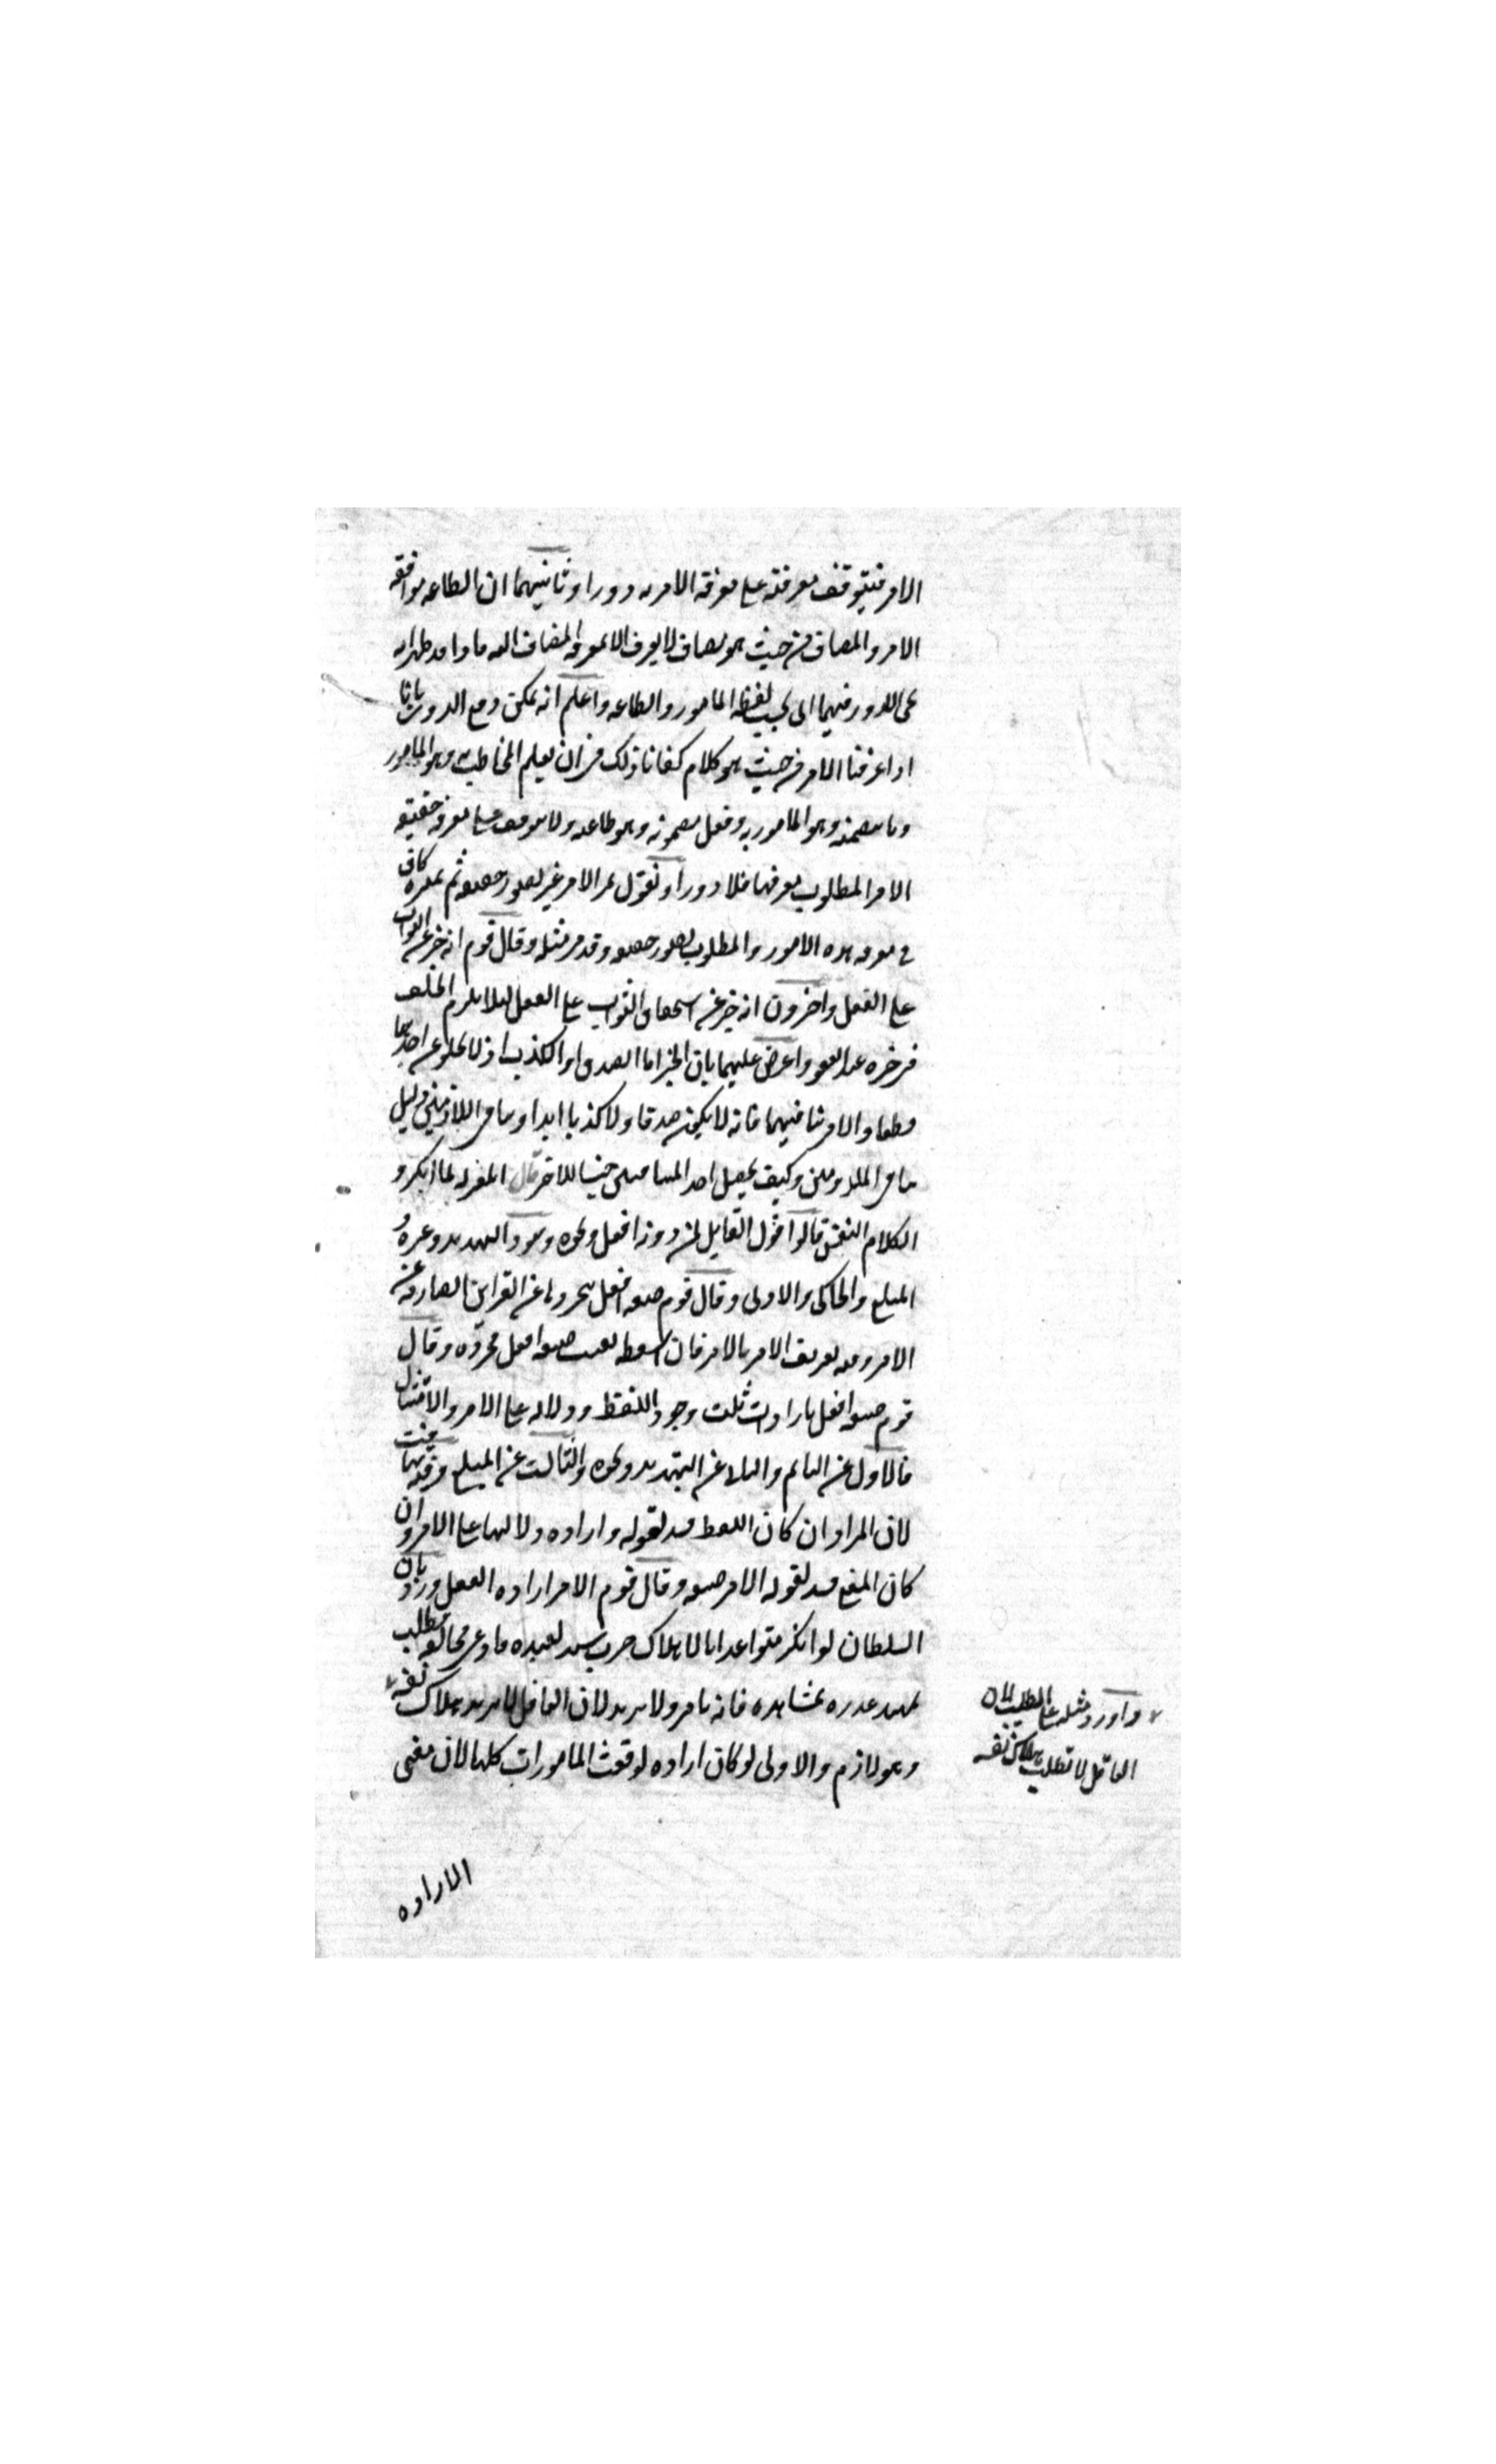 الامر فيتوقف معرفته على معرفة الامر به دورا وثانيهما ان الطاعه موافقه
الامر والمضاف من حيث هو مضاف لا يعرف الا بمعرفه المضاف اليه ما واحد طهرا به
على الدور فيهما اى بحسب لفظه المامور والطاعه واعلم انه يمكن دفع الدور بانا
اذا عرفنا الامر من حيث هو كلام كفانا ذلك فى ان يعلم المخاطب به وهو المامور
وما يتضمنه وهو المامور به وفعل مضمونه وهو طاعه ولا يتوقف على معرفه حقيقه
الامر المطلوب معرفتها فلا دور او نقول تميز الامر غير تصور حقيقته ثم تميزه كاف
فى معرفه هذه الامور والمطلوب تصور حقيقته وقد مر مثله وقال قوم انه خبر عن الثواب
على الفعل واخرون انه خبر عن استحقاق الثواب على الفعل ليلا يلزم الخلف
فى خبره عند العفو واعترض عليهما بان الخبر اما الصدق او الكذب اذ لا يخلو عن احدهما
قطعا والامر ينافيهما فانه لا يكون صدقا ولا كذبا ابدا وتنافى اللازمين دليل
تنافى الملزومين وكيف يجعل احد المتنافيين جنسا للاخر قال المعتزله لما انكروا
الكلام النفسى قالوا قول القايل لمن دونه افعل ونحوه ويرد التهديد وغيره و
المبلغ والحاكى والادنى وقال قوم صيغه افعل بتجردها عن القراين الصارفه عن
الامر وفيه تعريف الامر بالامر فان اسقطه بقيت صيغه افعل مجرده وقال
قوم صيغه افعل بارادات ثلث وجود اللفظ ودلالته على الامر والامتثال
فالاول عن النايم والثانى عن التهديد ونحوه والثالث عن المبلغ وفيه تهافت
لان المراد ان كان اللفظ فسد لقوله واراده دلالتها على الامر وان
كان المعنى فسد لقوله الامر صيغه وقال قوم الامر اراده الفعل ورد بان
السلطان لو انكر متوعدا بالاهلاك ضرب سيد لعبده فادعى مخالفته فطلب
تمهيد عذره بمشاهده فانه يامر ولا يريد لان العاقل لا يريد هلاك نفسه
وهو لازم والاولى لو كان اراده لوقعت المامورات كلها لان معنى
واورد مثله على الطلب لان
العاقل لا يطلب هلاك نفسه
الاراده